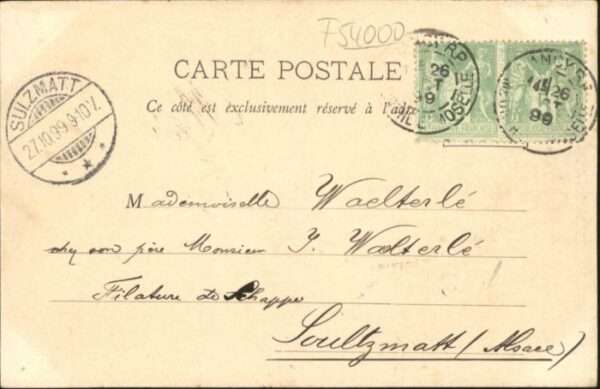 F54000
CARTE POSTALE
Ce côté est exclusivement réservé à l'adre
SULZMATT
27.10.99.9-10V.
26
99
MOSELLE
26
99
Mademoiselle Waelterlé
chez son père Monsieur J. Wælterlé
Filature de Schappe
Soultzmatt (Alsace)